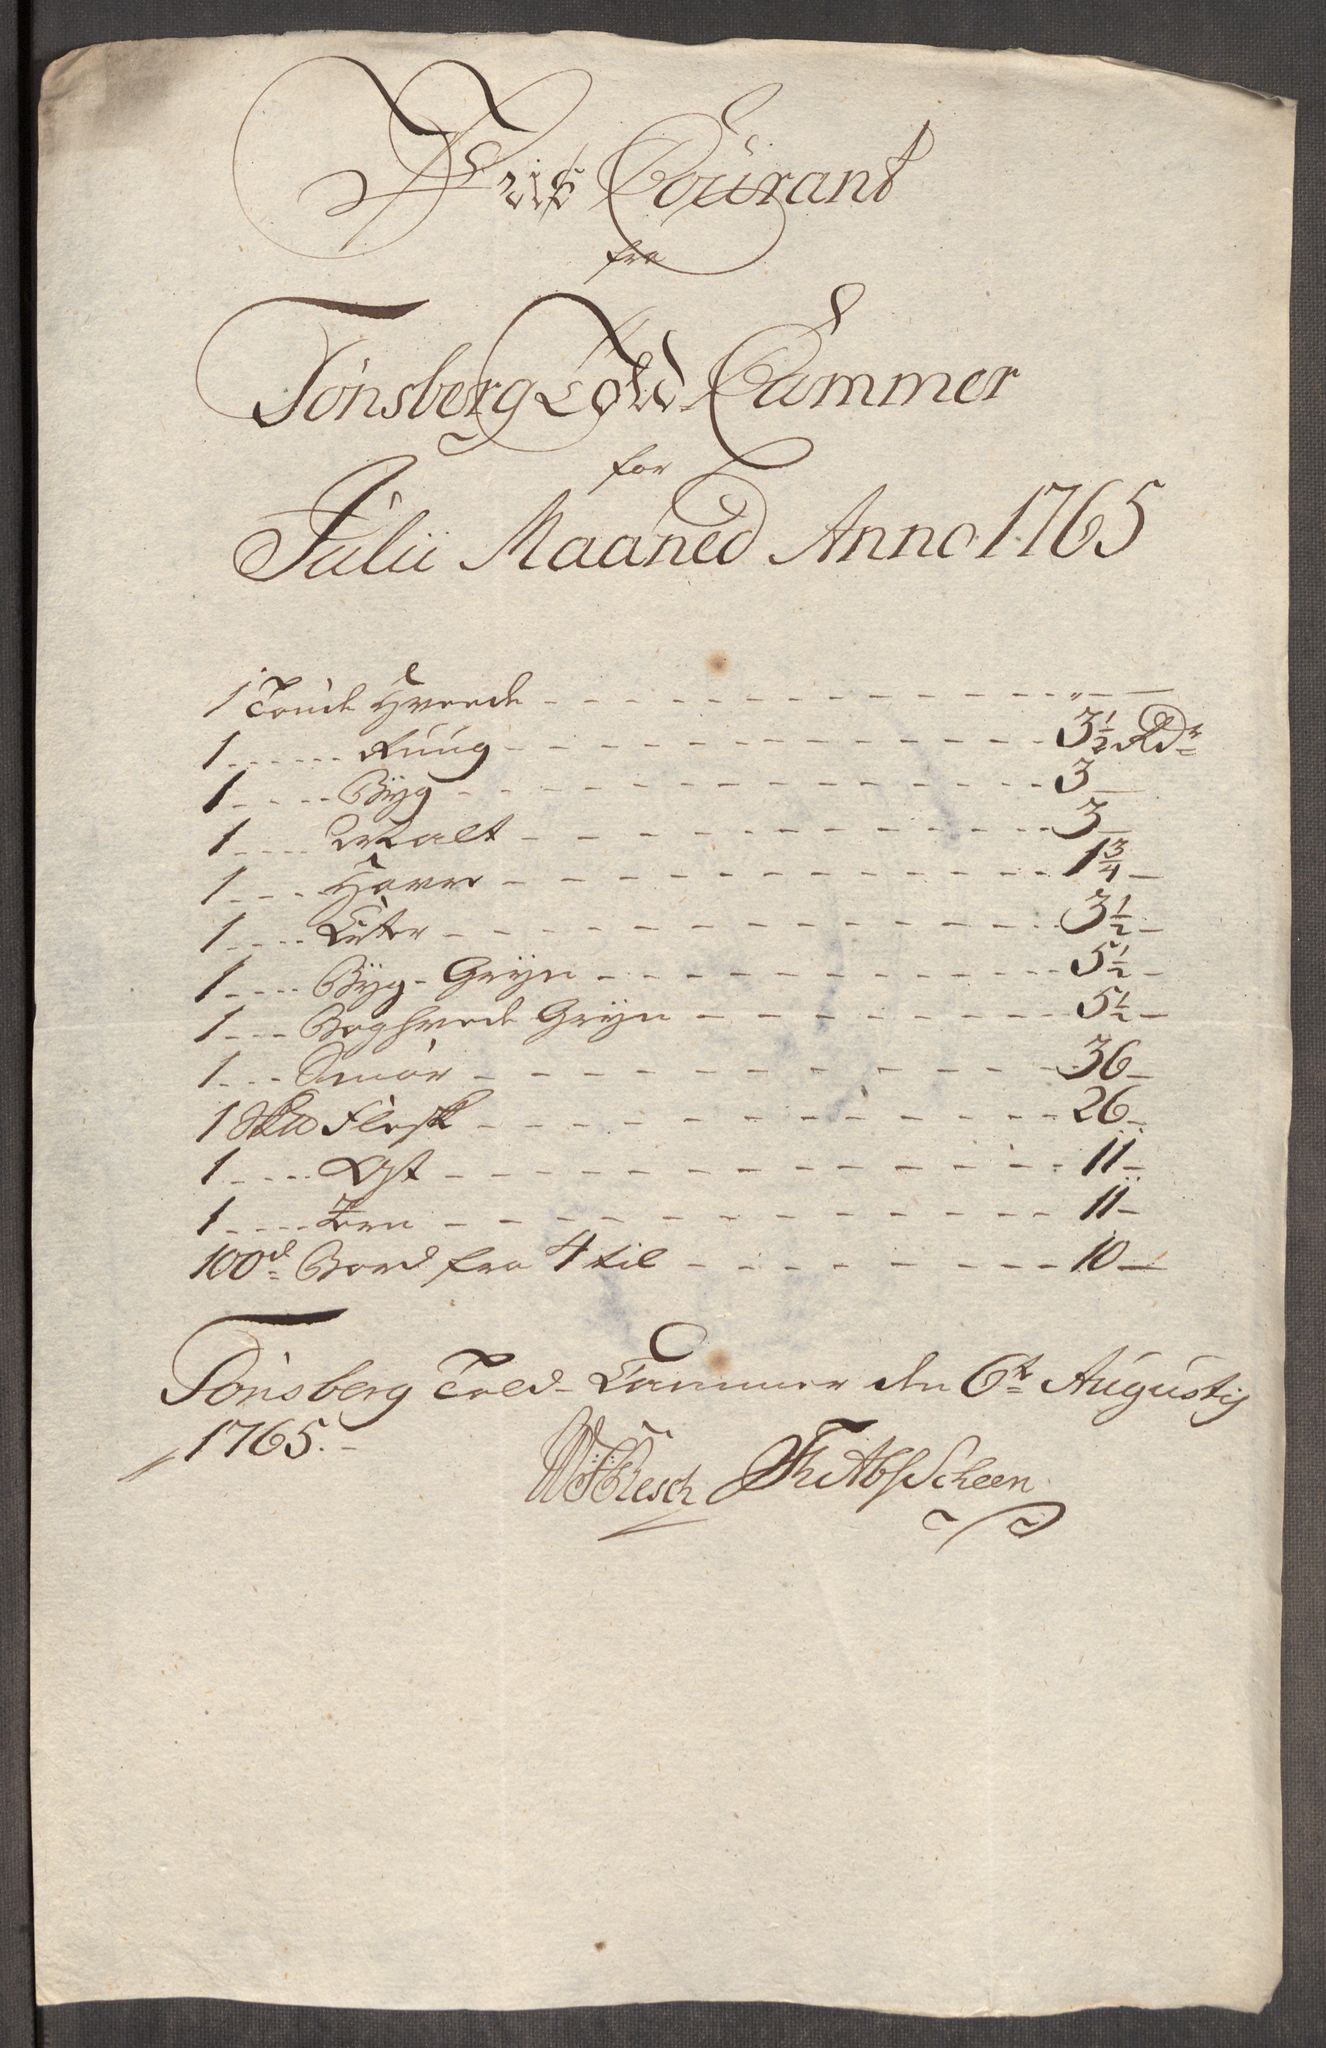 Pris Courant
fra
Tønsberg Told-Cammer
for
Julii Maaned Anno 1765
1 Tønde Hveede - - - " —
1 - - - Rúúg - - - 3 1/2 Rdr
1 - - - Bÿg - - - 3 —
1 - - - Malt - - - 3 —
1 - - - Havre - - - 1 3/4 —
1 - - - Erter - - - 3 1/2 —
1 - - - Bÿg-Grÿn - - - 5 1/2 —
1 - - - Boghvede Grÿn - - - 5 1/2 —
1 - - - Smør - - - 36 —
1 Sk℔ Flesk - - - 26 —
1 - - - Ost - - - 11 —
1 - - - - - - 11 —
100d Bord fra 4 til - - - 10 —
Tønsberg Told-Cammer den 6te Augustij
1765.
Resch Scheen